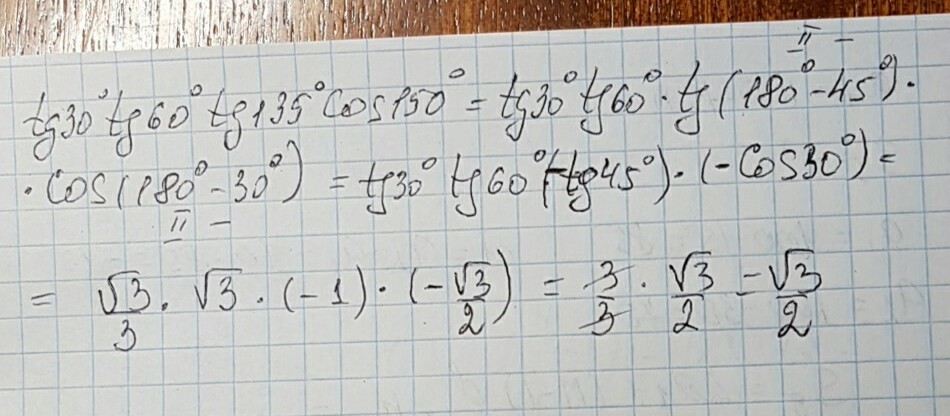 II -
tg30° tg60° tg135° cos150° = tg30° tg60° · tg(180° - 45°) ·
· cos(180° - 30°) = tg30° tg60° (-tg45°) · (-cos30°) =
II -
= √3/3 · √3 · (-1) · (-√3/2) = 3/3 · √3/2 = √3/2